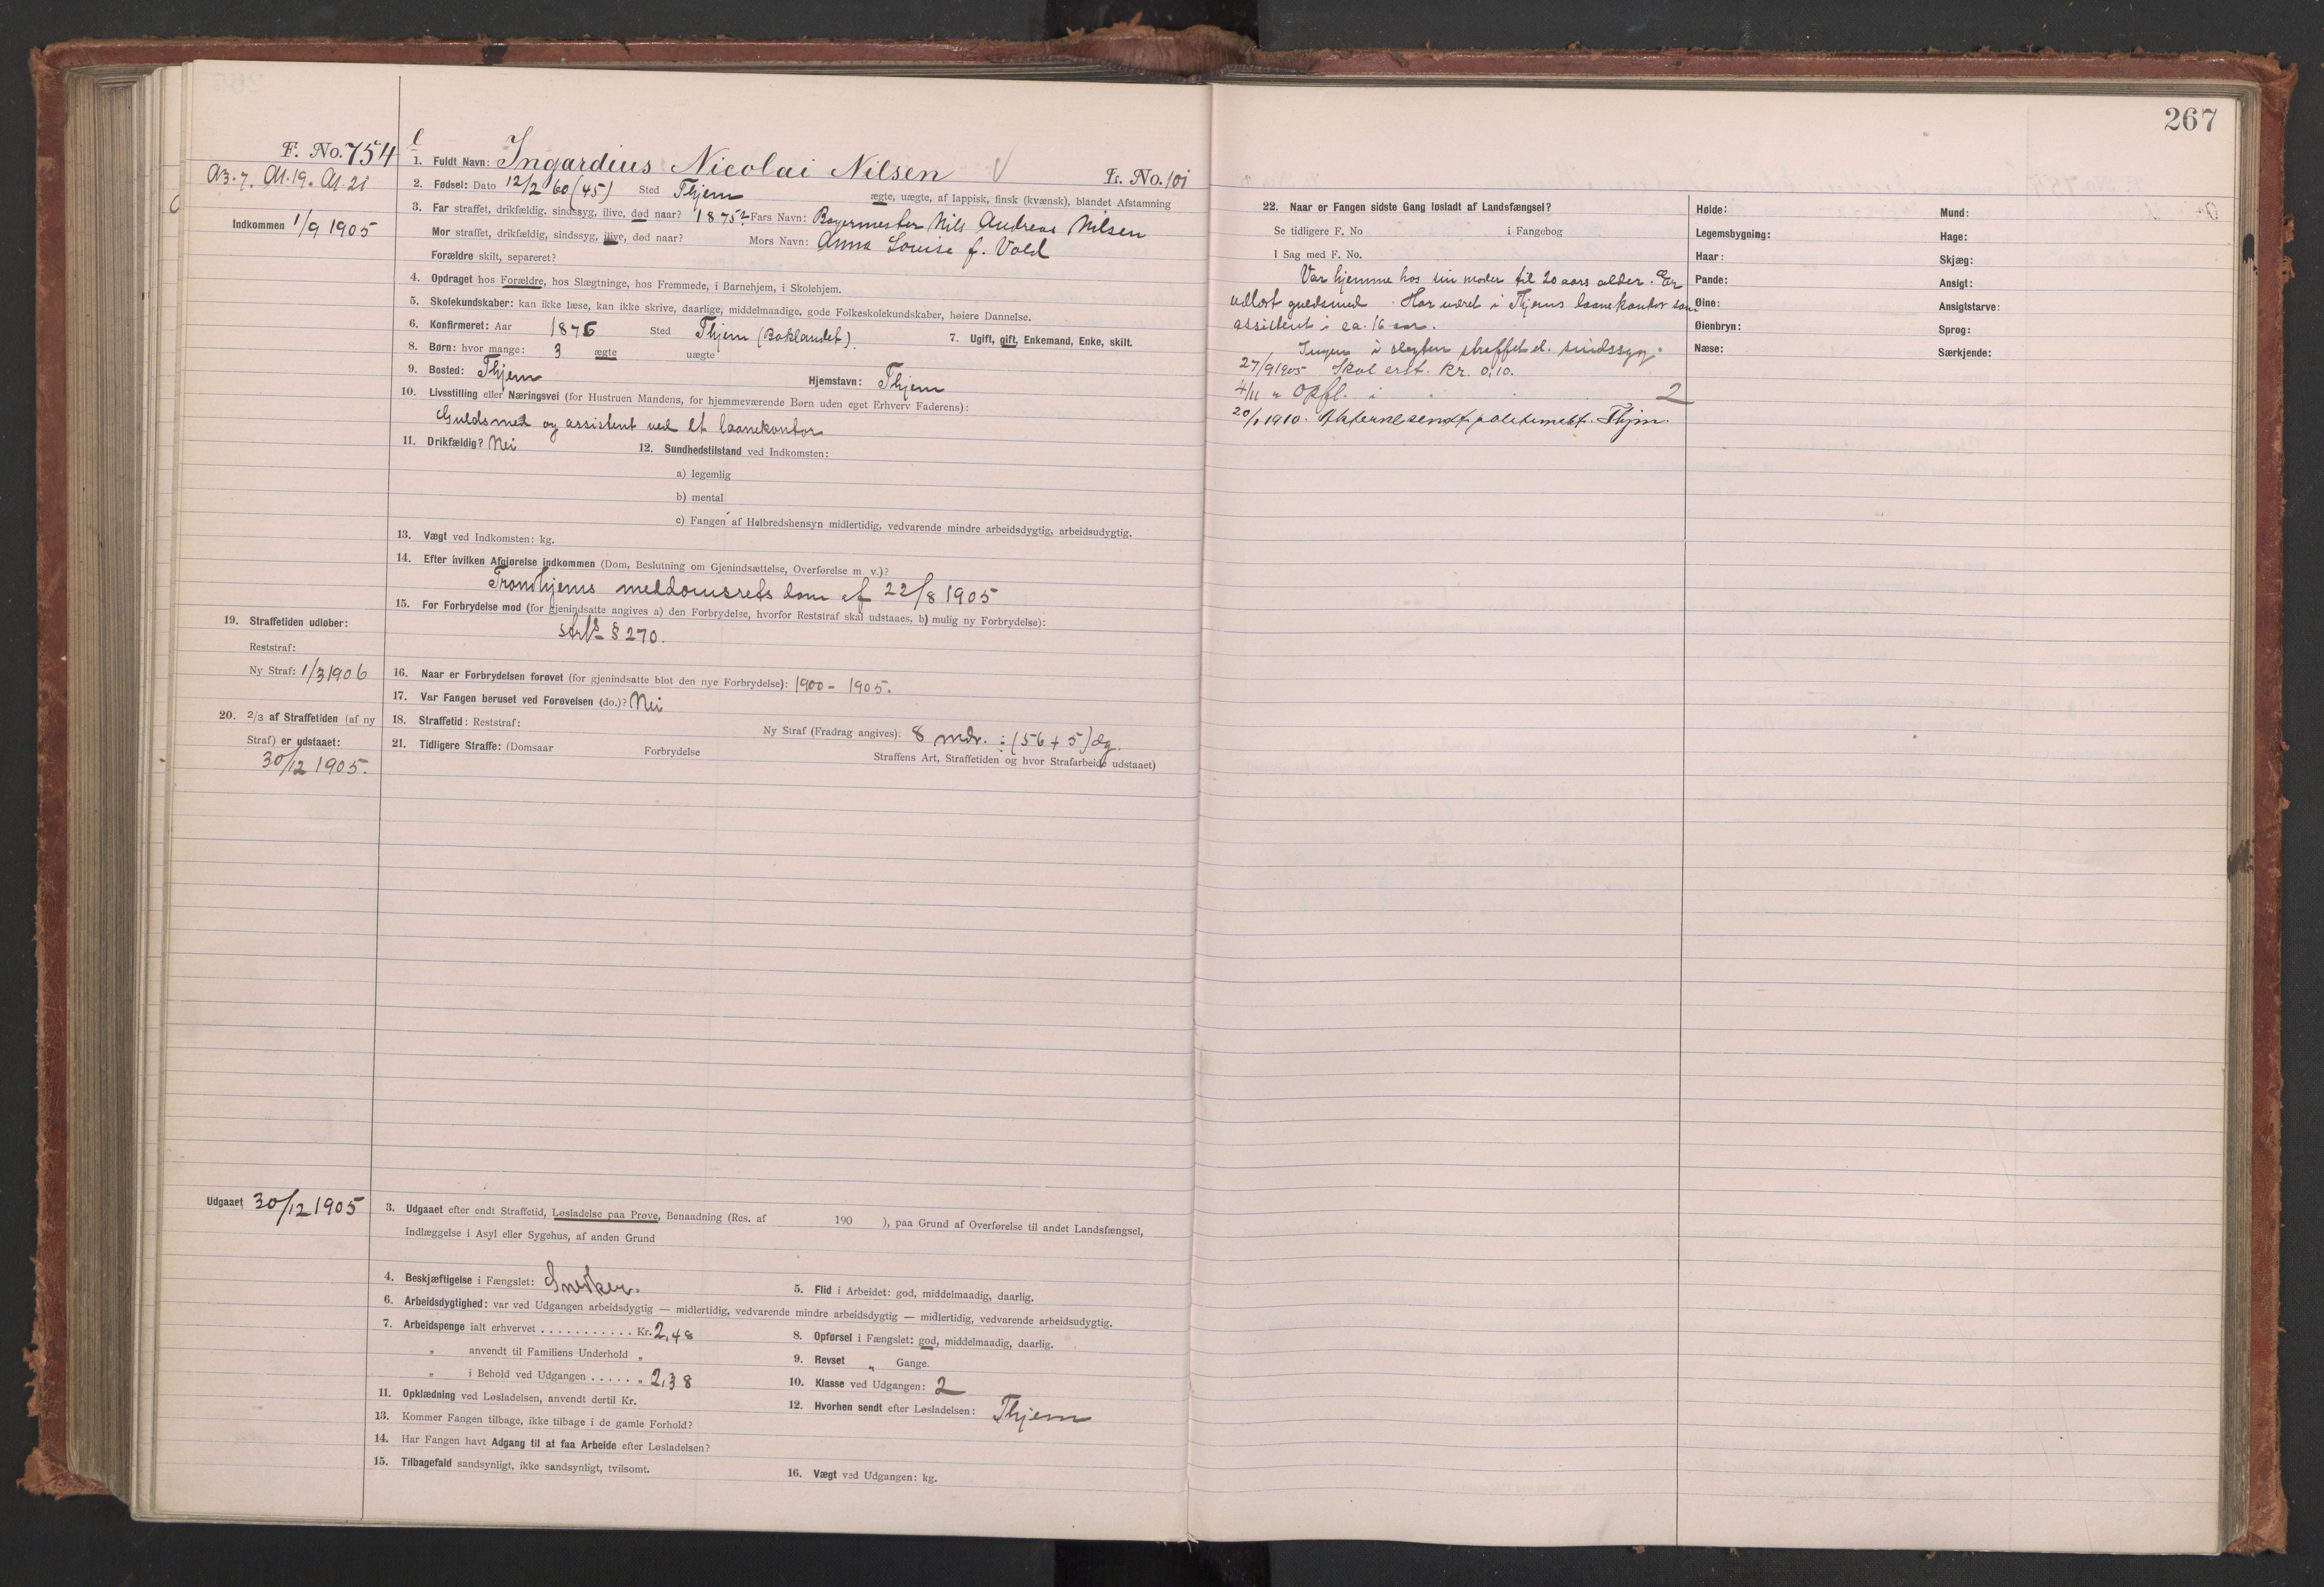 F. No. 754
A3.7. A1.19. A1.21
Indkommen 1/9 1905
1. Fuldt Navn: Ingardius Nicolai Nilsen
L. No. 101
2. Fødsel: Dato 12/2 60 (45) Sted Thjem ægte, uægte, af lappisk, finsk (kvænsk), blandet Afstamning
3. Far straffet, drikfældig, sindssyg, ilive, død naar? 1875? Fars Navn: Bøgermester Nils Andreas Nilsen
Mor straffet, drikfældig, sindssyg, ilive, død naar? Mors Navn: Anna Louise f. Vold
Forældre skilt, separeret?
4. Opdraget hos Forældre, hos Slægtninge, hos Fremmede, i Barnehjem, i Skolehjem.
5. Skolekundskaber: kan ikke læse, kan ikke skrive, daarlige, middelmaadige, gode Folkeskolekundskaber, høiere Dannelse.
6. Konfirmeret: Aar 1875 Sted Thjem (Baklandet). 7. Ugift, gift, Enkemand, Enke, skilt.
8. Børn: hvor mange: 3 ægte uægte
9. Bosted: Thjem Hjemstavn: Thjem
10. Livsstilling eller Næringsvei (for Hustruen Mandens, for hjemmeværende Børn uden eget Erhverv Faderens):
Guldsmed og assistent ved et laanekontor
11. Drikfældig? Nei 12. Sundhedstilstand ved Indkomsten:
a) legemlig
b) mental
c) Fangen af Helbredshensyn midlertidig, vedvarende mindre arbeidsdygtig, arbeidsudygtig.
13. Vægt ved Indkomsten: kg.
14. Efter hvilken Afgjørelse indkommen (Dom, Beslutning om Gjenindsættelse, Overførelse m. v.)?
Trondhjems meddomsrets dom af 22/8 1905
15. For Forbrydelse mod (for gjenindsatte angives a) den Forbrydelse, hvorfor Reststraf skal udstaaes, b) mulig ny Forbrydelse):
strfl. § 270.
19. Straffetiden udløber:
Reststraf:
Ny Straf: 1/3 1906
16. Naar er Forbrydelsen forøvet (for gjenindsatte blot den nye Forbrydelse): 1900 - 1905.
17. Var Fangen beruset ved Forøvelsen (do.)? Nei
20. 2/3 af Straffetiden (af ny
Straf) er udstaaet:
30/12 1905.
18. Straffetid: Reststraf: Ny Straf (Fradrag angives): 8 mdr. ÷ (56 + 5) dg.
21. Tidligere Straffe: (Domsaar Forbrydelse Straffens Art, Straffetiden og hvor Strafarbeide udstaaet)
Udgaaet 30/12 1905
3. Udgaaet efter endt Straffetid, Løsladelse paa Prøve, Benaadning (Res. af 190 ), paa Grund af Overførelse til andet Landsfængsel,
Indlæggelse i Asyl eller Sygehus, af anden Grund
4. Beskjæftigelse i Fængslet: Snedker. 5. Flid i Arbeidet: god, middelmaadig, daarlig.
6. Arbeidsdygtighed: var ved Udgangen arbeidsdygtig — midlertidig, vedvarende mindre arbeidsdygtig — midlertidig, vedvarende arbeidsudygtig.
7. Arbeidspenge ialt erhvervet . . . . . . . . . . . Kr. 2,48 8. Opførsel i Fængslet: god, middelmaadig, daarlig.
„ anvendt til Familiens Underhold „ 9. Revset „ Gange.
„ i Behold ved Udgangen . . . . . „ 2,38 10. Klasse ved Udgangen: 2
11. Opklædning ved Løsladelsen, anvendt dertil Kr. 12. Hvorhen sendt efter Løsladelsen: Thjem
13. Kommer Fangen tilbage, ikke tilbage i de gamle Forhold?
14. Har Fangen havt Adgang til at faa Arbeide efter Løsladelsen?
15. Tilbagefald sandsynligt, ikke sandsynligt, tvilsomt. 16. Vægt ved Udgangen: kg.
267
22. Naar er Fangen sidste Gang løsladt af Landsfængsel?
Se tidligere F. No i Fangebog
I Sag med F. No.
Var hjemme hos sin moder til 20 aars alder. Er
udlært guldsmed. Har været i Thjems laanekontor som
assistent i ca. 16 aar.
Ingen i slegten straffet el. sindssyg.
27/9 1905 Skal erst. Kr. 0,10.
4/11 „ Opfl. i 2
20/1 1910. Akterne sendt politimest. Thjm.
Høide: Mund:
Legemsbygning: Hage:
Haar: Skjæg:
Pande: Ansigt:
Øine: Ansigtstarve:
Øienbryn: Sprog:
Næse: Særkjende: